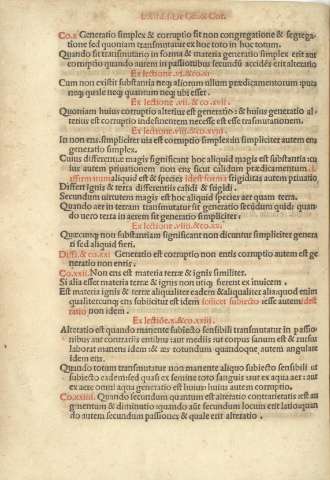 Co.x Generatio simplex & corruptio sit non congregatione & segrega
tione sed quoniam transmutatur ex hoc toto in hoc totum.
Quando sit transmutatio in forma & materia generatio simplex erit aut
corruptio quando autem in passionibus secundū accidēs erit alteratio
Ex lectione .vi. & co.xi
Cum non existit substantia neq aliorum ullum prædicamentorum ipsa
neq; quale neq quantum neq; ubi esset.
Ex lectione .vii. & co.xvii.
Quoniam huius corruptio alterius est generatio & huius generatio al-
terius est corruptio indeficientem necesse est esse transmutationem.
Ex lectione .viii. & co.xviii.
In non ens.simpliciter uia est corruptio simplex in simpliciter autem ens
generatio simplex.
Cuius differentiæ magis significant hoc aliquid magis est substantia cu
ius autem priuationem non ens sicut calidum prædicamentum &
affirmatum aliquid est & species frigiditas autem priuatio
Differt ignis & terra differentiis calidi & frigidi.
Secundum ueritatem magis est hoc aliquid species aer quam terra.
Quando aer in terram transmutatur sit generatio secūdum quid: quan
do uero terra in aerem sit generatio simpliciter:
Ex lectione .viii. & co.xx:
Quæcunq non substantiam significant non dicuntur simpliciter genera
ri sed aliquid fieri.
& co.xxi Generatio est corruptio non entis corruptio autem est ge
neratio non entis.
Co.xxii. Non ens est materia terræ & ignis similiter.
Si alia esset materia terræ & ignis non utiq fierent ex inuicem.
Est materia ignis & terræ aliqualiter eadem & aliqualiter alia: quod enim
qualitercunq; ens subiicitur est idem scilicet subiecto esse autem idest
ratio non idem.
Ex lectiōe .x. & co.xxiii.
Alteratio est quando manente subiecto sensibili transmutatur in passio
nibus aut contrariis entibus aut mediis aut corpus sanum est & rursus
laborat manens idem: & æs rotundum quandoque autem angulare
idem ens.
Quando totum transmutatur non manente aliquo subiecto sensibili ut
subiecto eadem sed quasi ex semine toto sanguis aut ex aqua aer: aut
ex aere omni aqua generatio est huius huius autem corruptio.
Co.xxiiii. Quando secundum quantum est alteratio contrarietatis est au
gmentum & diminutio quando aūt secundum locum erit latio quan
do autem secundum passiones & quale erit alteratio.